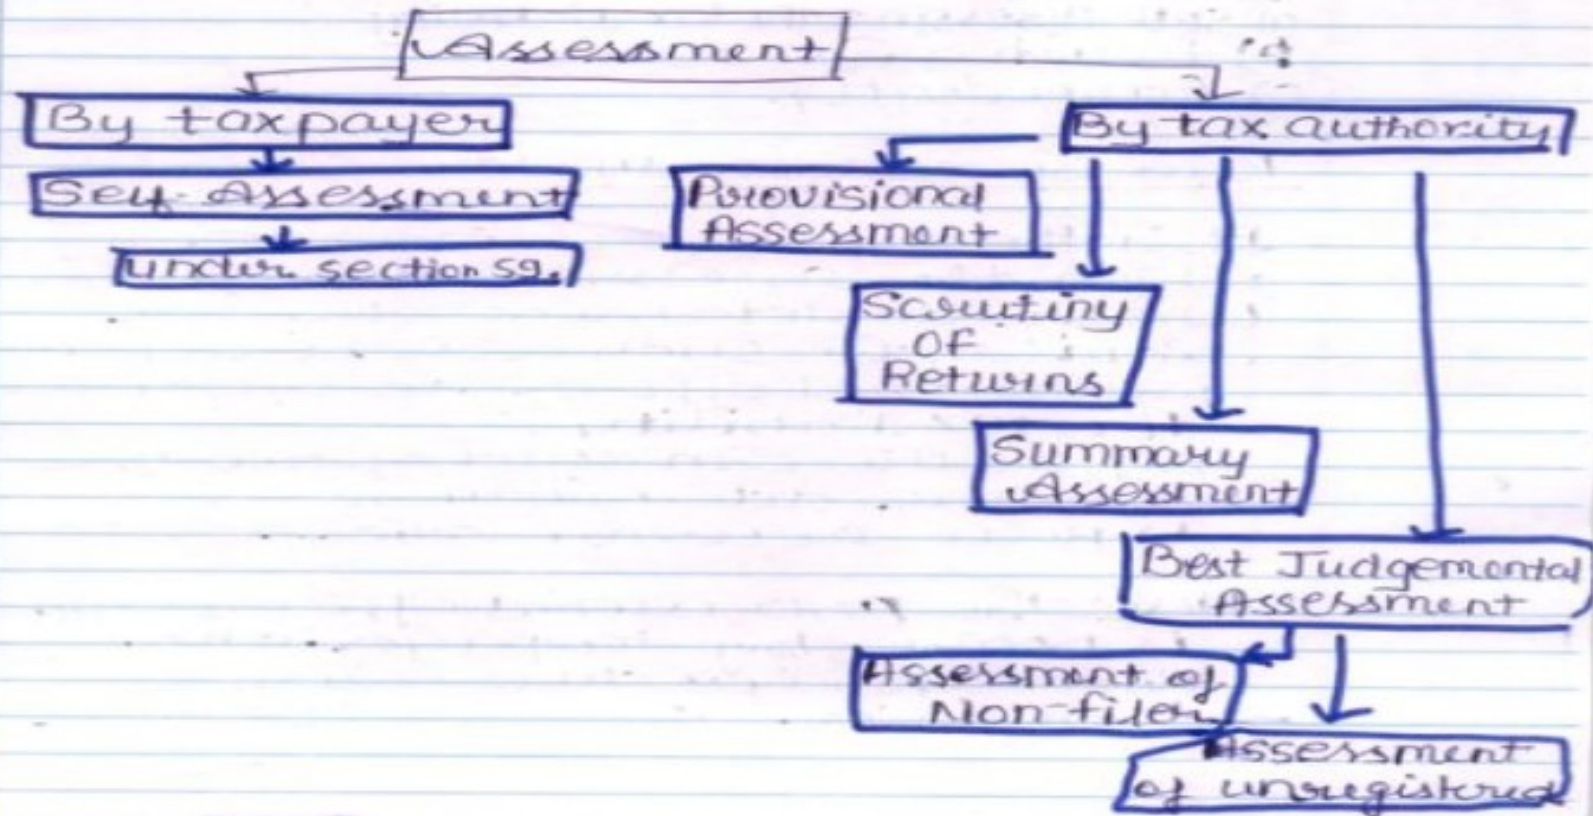 Assessment
By taxpayer
Self-Assessment
under section 59.
By tax authority
Provisional
Assessment
Scrutiny
Of
Returns
Summary
Assessment
Best Judgemental
Assessment
Assessment of
Non-filer
Assessment
of unregistered